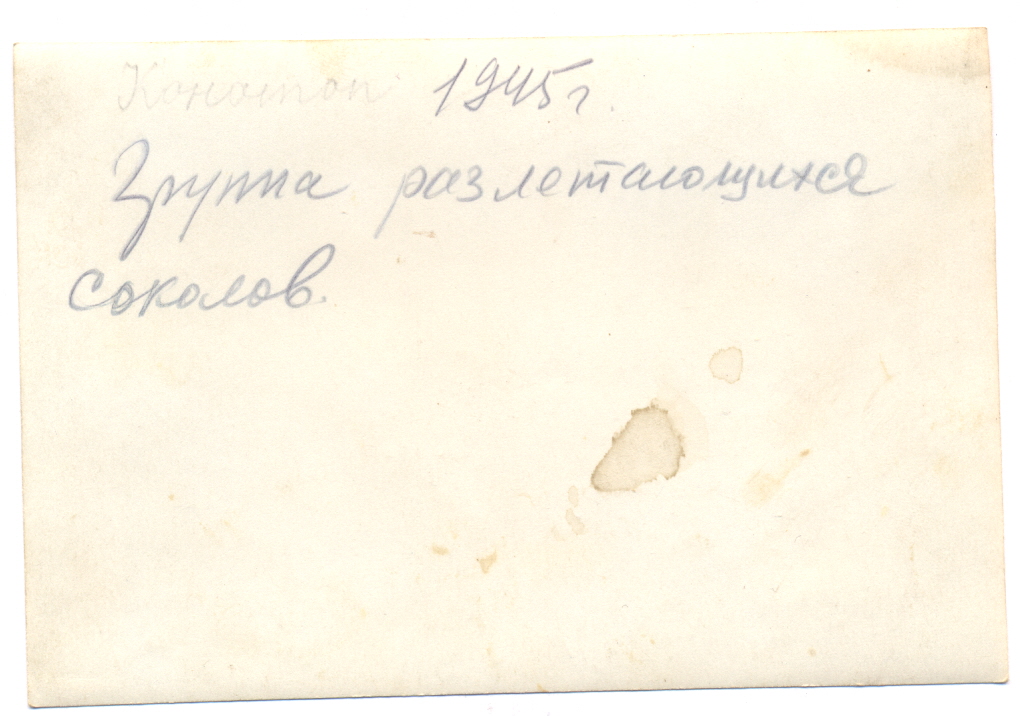 Конотоп 1945 г.
Группа разлетающихся
соколов.